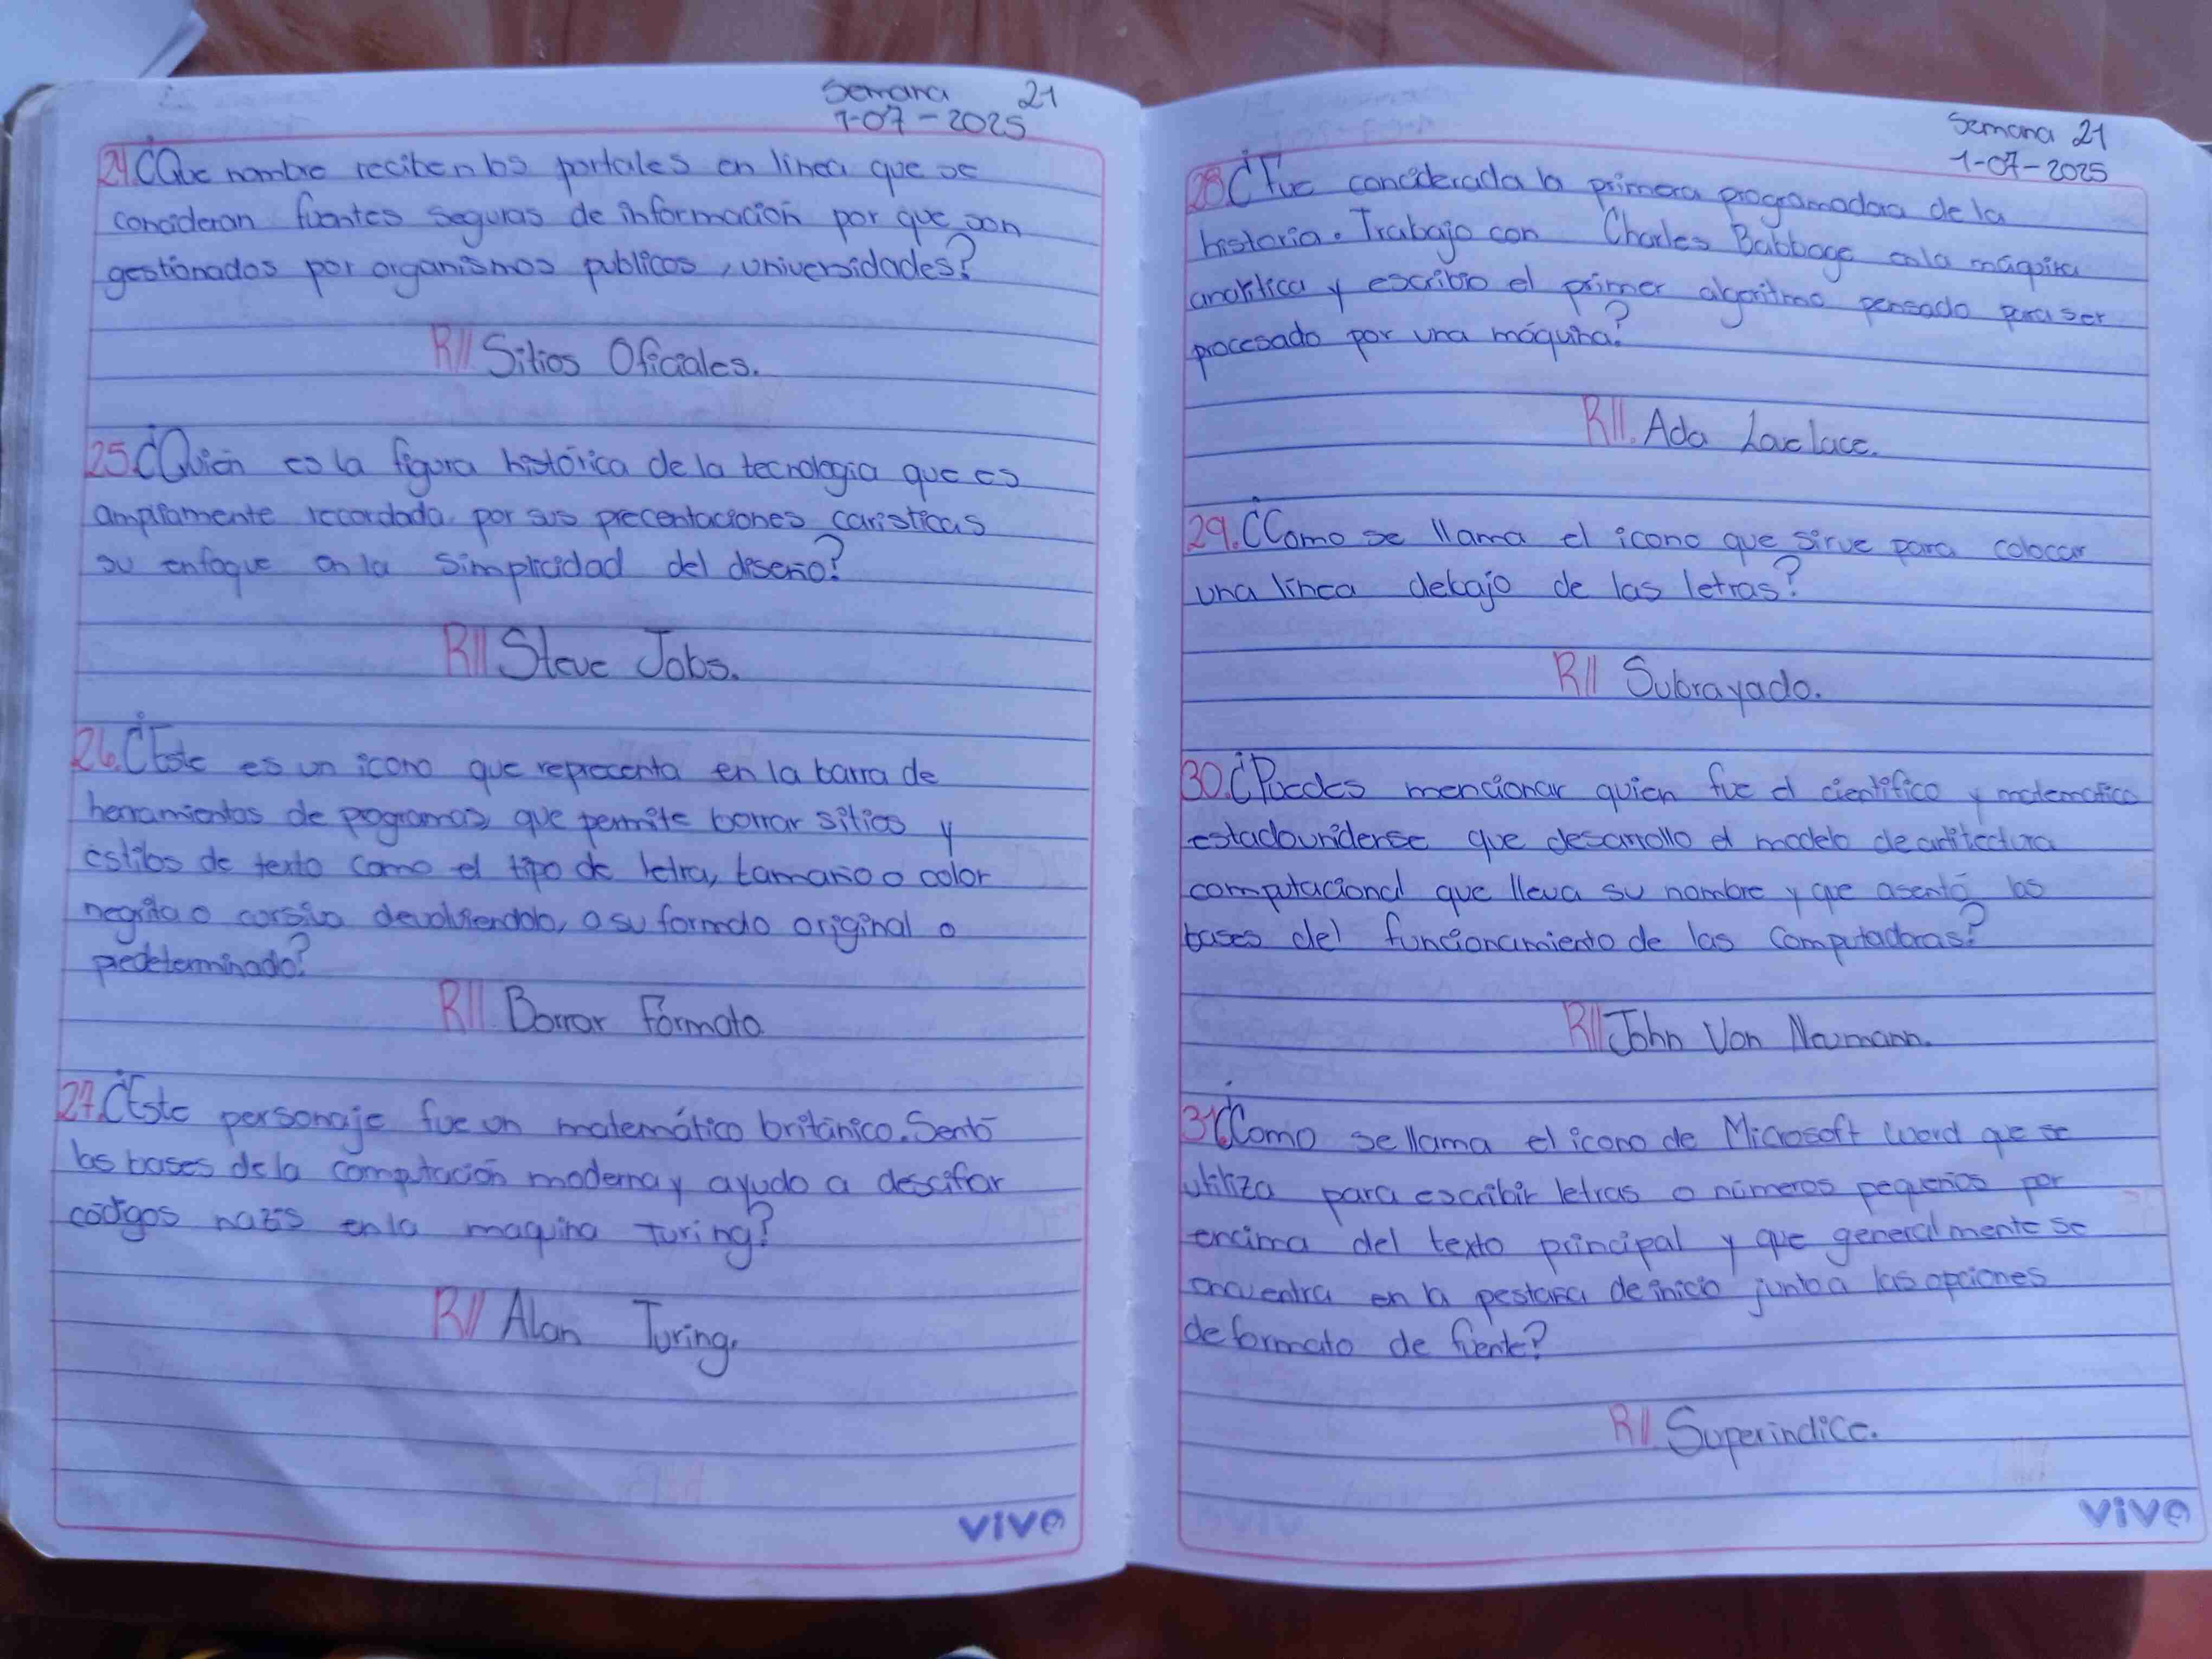 Semana 21
1-07-2025
24. ¿Que nombre reciben los portales en línea que se
concideran fuentes seguras de información por que son
gestionados por organismos publicos, universidades?
R// Sitios Oficiales.
25. ¿Quién es la figura histórica de la tecnologia que es
ampliamente recordada por sus precentaciones caristicas
su enfoque en la simplicidad del diseño?
R// Steve Jobs.
26. ¿Este es un icono que reprecenta en la barra de
herramientas de programas, que permite borrar sitios y
estilos de texto como el tipo de letra, tamaño o color
negrita o corsiva devolviendolo, a su formato original o
predeterminado?
R//. Borrar Formato
27. ¿Este personaje fue un matemático británico. Sentó
las bases de la computación moderna y ayudo a descifar
códigos nazis en la maquina Turing?
R// Alan Turing.
vivo
Semana 21
1-07-2025
28. ¿Fue conciderada la primera programadora de la
historia. Trabajo con Charles Babbage en la máquina
analitica y escribio el primer algoritmo pensado para ser
procesado por una máquina?
R//. Ada Lovelace.
29. ¿Como se llama el icono que sirve para colocar
una línea debajo de las letras?
R// Subrayado.
30. ¿Puedes mencionar quien fue el científico y matemático
estadounidense que desarrollo el modelo de aritectura
computacional que lleva su nombre y que asentó las
bases del funcionamiento de las Computadoras?
R// John Von Neumann.
31. ¿Como se llama el icono de Microsoft Word que se
utiliza para escribir letras o números pequeños por
encima del texto principal y que generalmente se
encuentra en la pestaña de inicio junto a las opciones
de formato de fuente?
R//. Superindice.
vivo